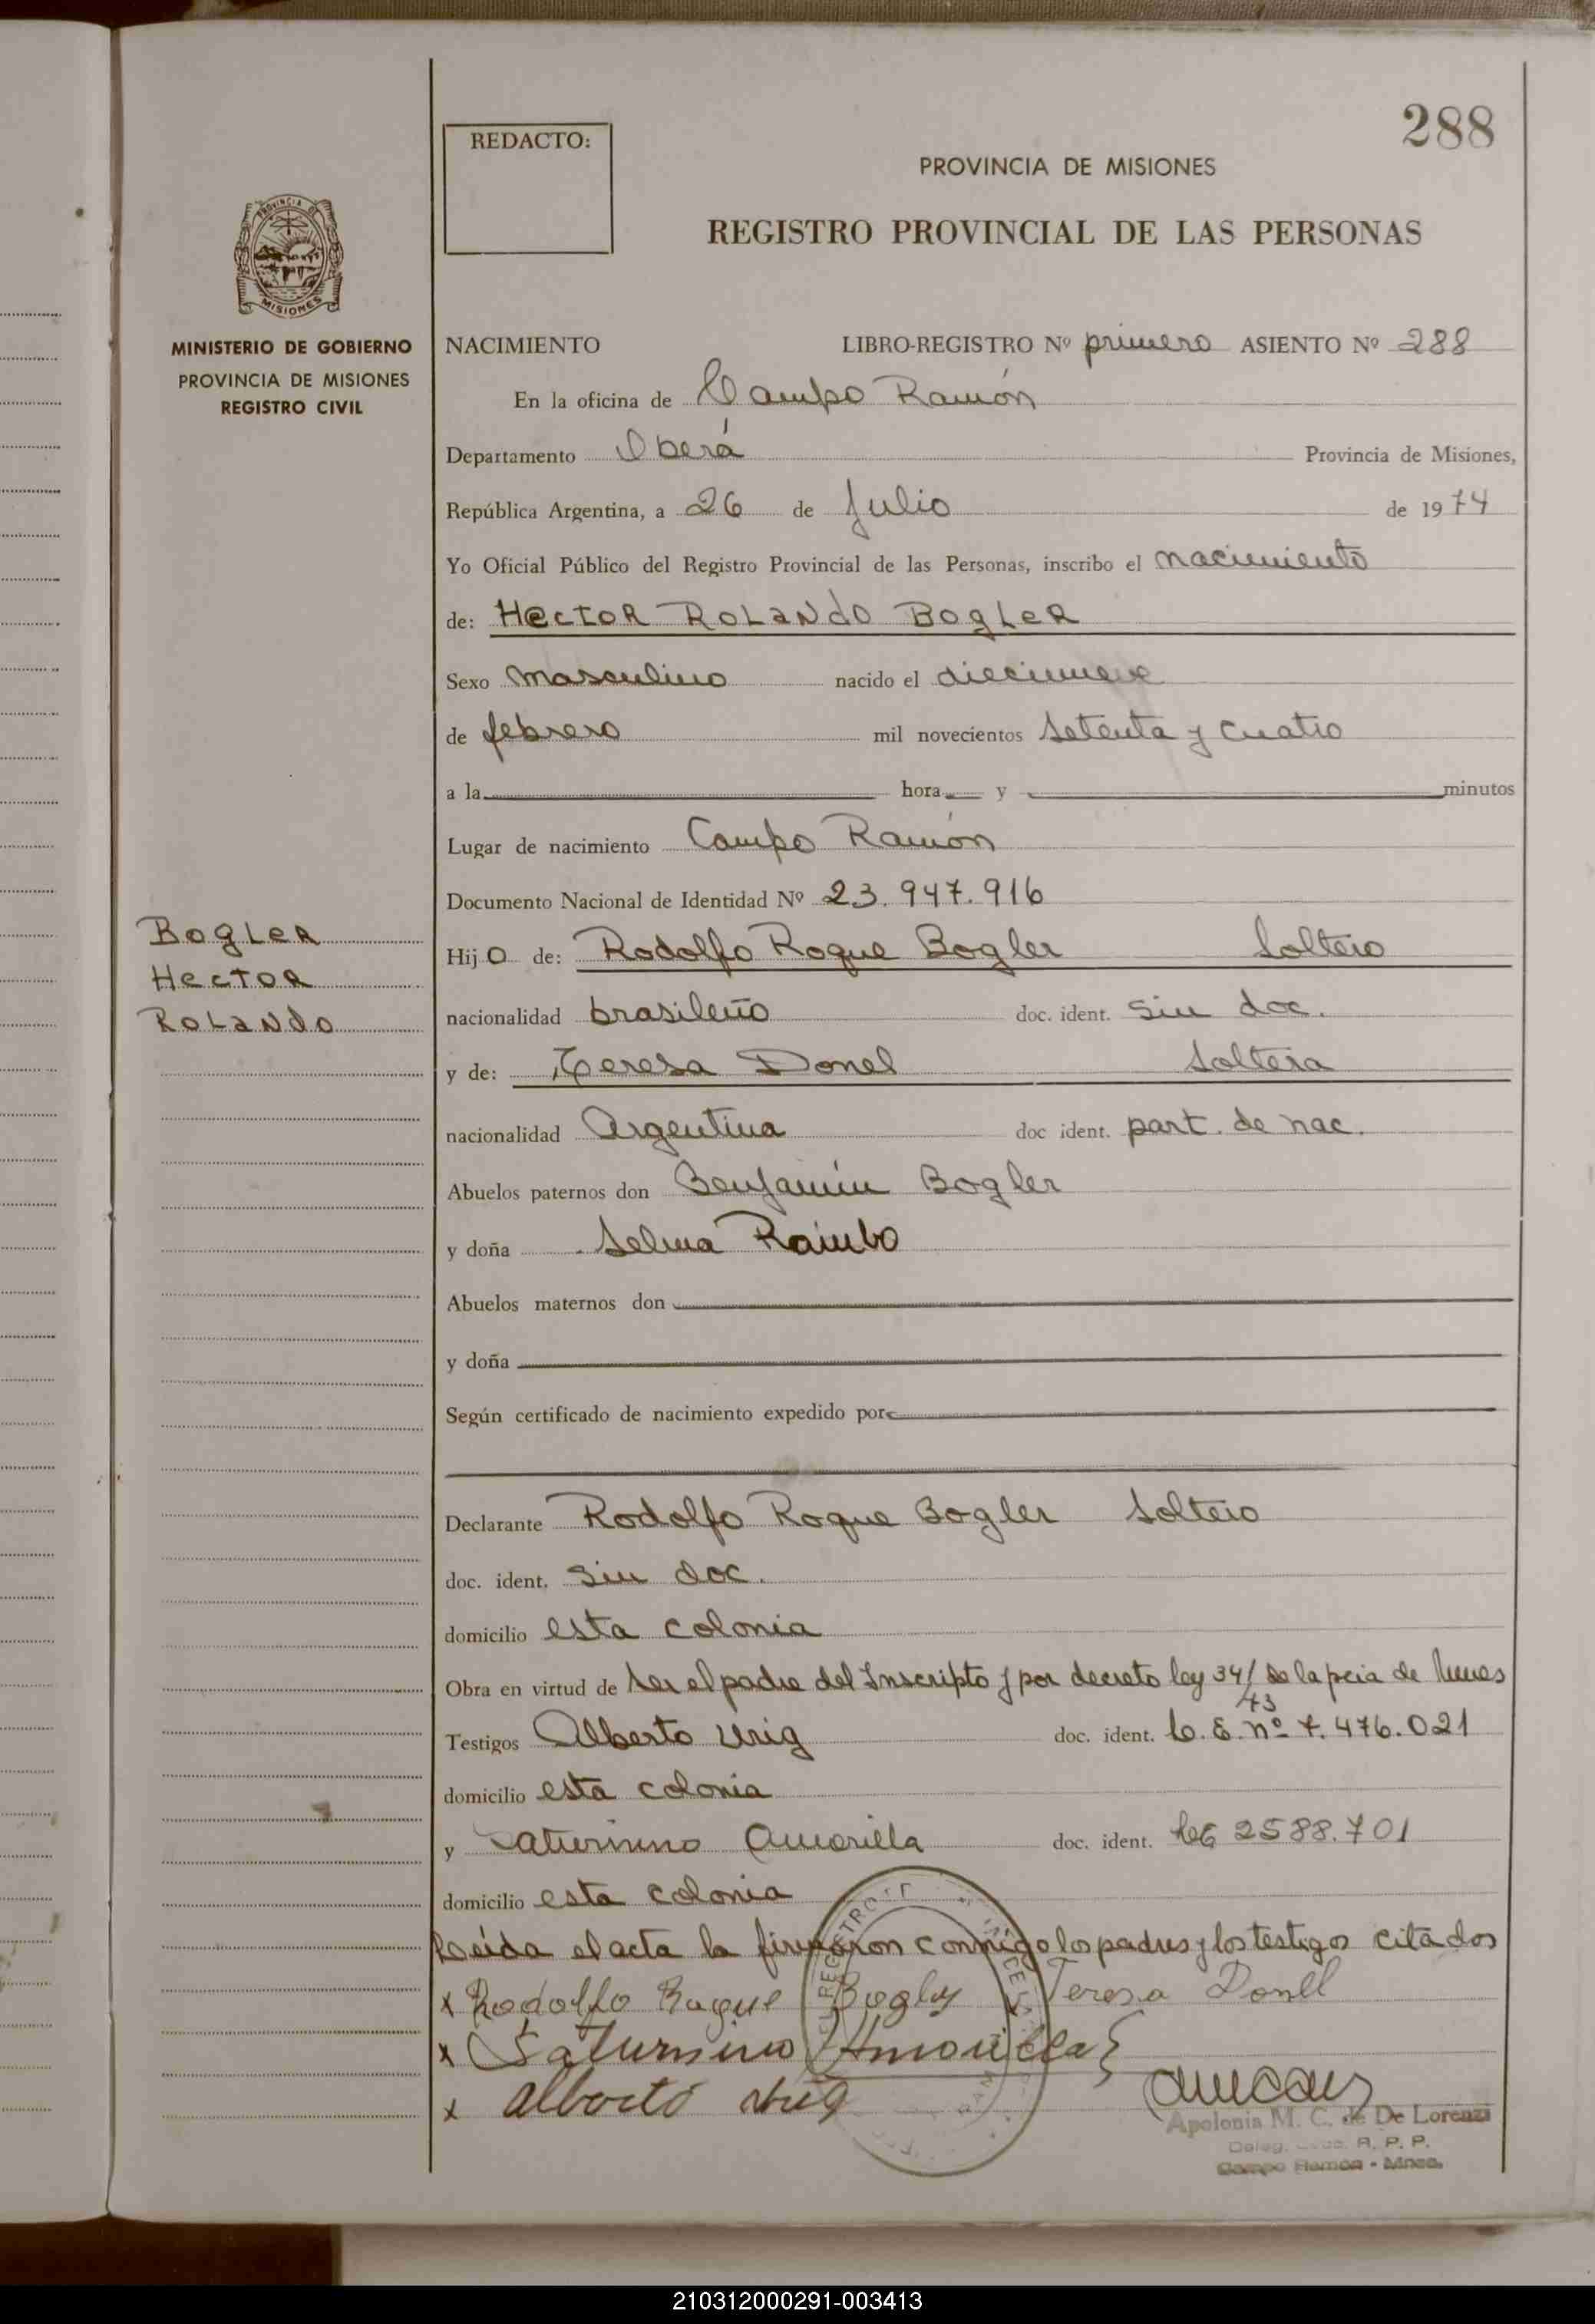 288
REDACTO:
PROVINCIA DE MISIONES
REGISTRO PROVINCIAL DE LAS PERSONAS
PROVINCIA DE
MISIONES
MINISTERIO DE GOBIERNO
PROVINCIA DE MISIONES
REGISTRO CIVIL
NACIMIENTO LIBRO-REGISTRO Nº primero ASIENTO Nº 288
En la oficina de Campo Ramón
Departamento Oberá Provincia de Misiones,
República Argentina, a 26 de Julio de 1974
Yo Oficial Público del Registro Provincial de las Personas, inscribo el nacimiento
de: HECTOR ROLANDO BOGLER
Sexo masculino nacido el diecinueve
de febrero mil novecientos setenta y cuatro
a la hora y minutos
Lugar de nacimiento Campo Ramón
Documento Nacional de Identidad Nº 23.947.916
BOGLER
HECTOR
ROLANDO
Hijo de: Rodolfo Roque Bogler Soltero
nacionalidad brasileño doc. ident. Sin doc.
y de: Teresa Donel Soltera
nacionalidad Argentina doc ident. part. de nac.
Abuelos paternos don Benjamín Bogler
y doña Selma Raimbo
Abuelos maternos don
y doña
Según certificado de nacimiento expedido por
Declarante Rodolfo Roque Bogler Soltero
doc. ident. Sin doc.
domicilio esta colonia
Obra en virtud de ser el padre del Inscripto y por decreto ley 34/43 de la pcia de
Testigos Alberto Urig doc. ident. L.E. nº 7.476.021
domicilio esta colonia
y Saturnino Amarilla doc. ident. LE 2588.701
domicilio esta colonia
Leída el acta la firmaron conmigo los padres y los testigos citados
x Rodolfo Roque Bogler Teresa Donel
x Saturnino Amarilla
x Alberto Urig
Apolonia M. C. de De Lorenzi
Deleg. R. P. P.
Campo Ramon - Mnes.
210312000291-003413